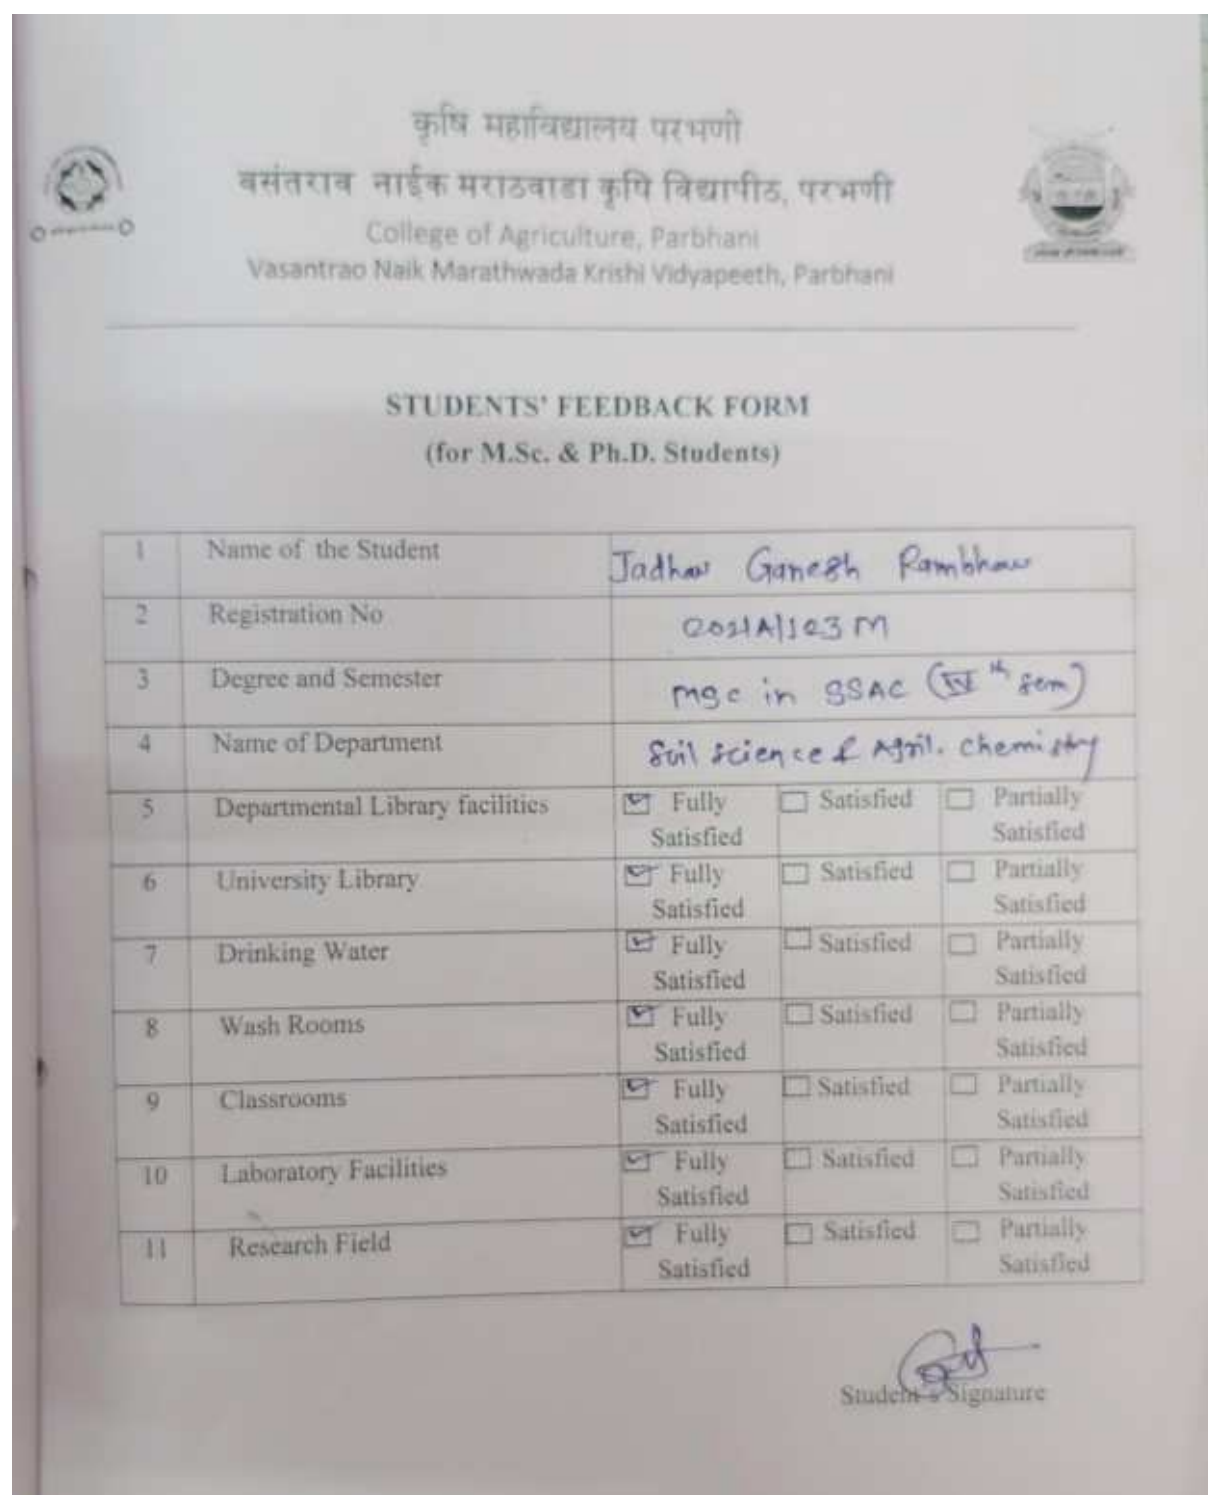 कृषि महाविद्यालय परभणी
वसंतराव नाईक मराठवाडा कृषि विद्यापीठ, परभणी
College of Agriculture, Parbhani
Vasantrao Naik Marathwada Krishi Vidyapeeth, Parbhani
STUDENTS' FEEDBACK FORM
(for M.Sc. & Ph.D. Students)
1 Name of the Student Jadhav Ganesh Rambhau
2 Registration No 2021A/123 M
3 Degree and Semester Msc in SSAC (IVth sem)
4 Name of Department Soil science & Agril. chemistry
5 Departmental Library facilities Fully Satisfied Partially
Satisfied Satisfied
6 University Library Fully Satisfied Partially
Satisfied Satisfied
7 Drinking Water Fully Satisfied Partially
Satisfied Satisfied
8 Wash Rooms Fully Satisfied Partially
Satisfied Satisfied
9 Classrooms Fully Satisfied Partially
Satisfied Satisfied
10 Laboratory Facilities Fully Satisfied Partially
Satisfied Satisfied
11 Research Field Fully Satisfied Partially
Satisfied Satisfied
Student's Signature